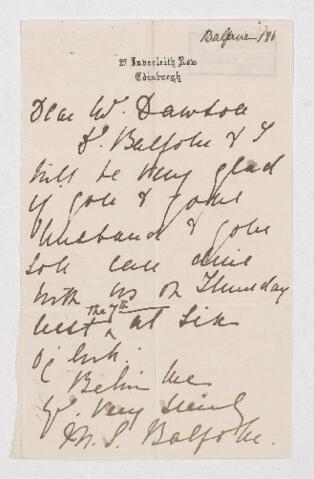 Balfour 180
27 Inverleith Row
Edinburgh
Dear Mr. Dawson
Dr. Balfour & I
will be very glad
if you & your
husband & your
son can dine
with us on Thursday
next the 7th at six
o'clock.
Believe me
Yr. very sincerely
M. S. Balfour.